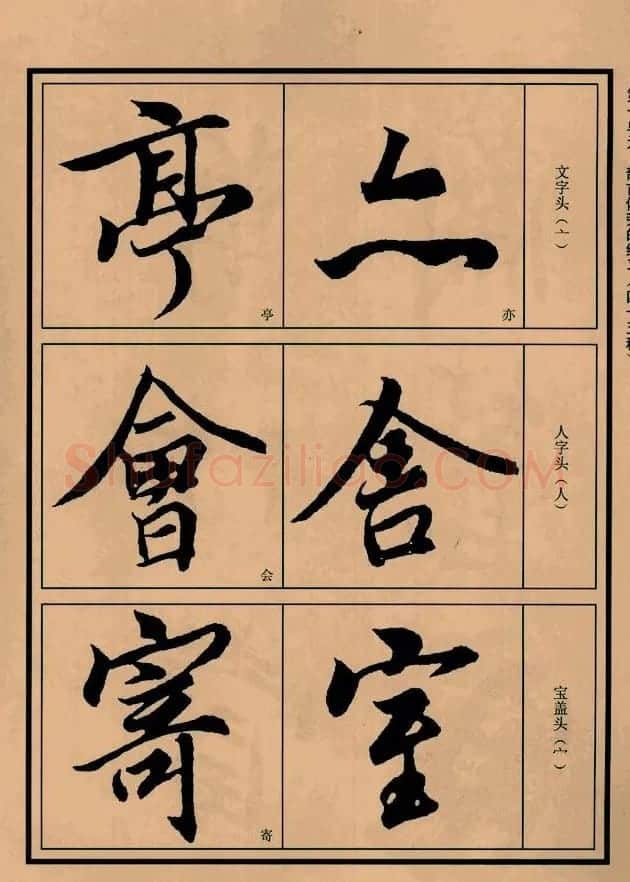 文字头（亠）
亦
亦
亭
亭
人字头（人）
舍
會
会
宝盖头（宀）
室
寄
寄
Shufaziliao.COM